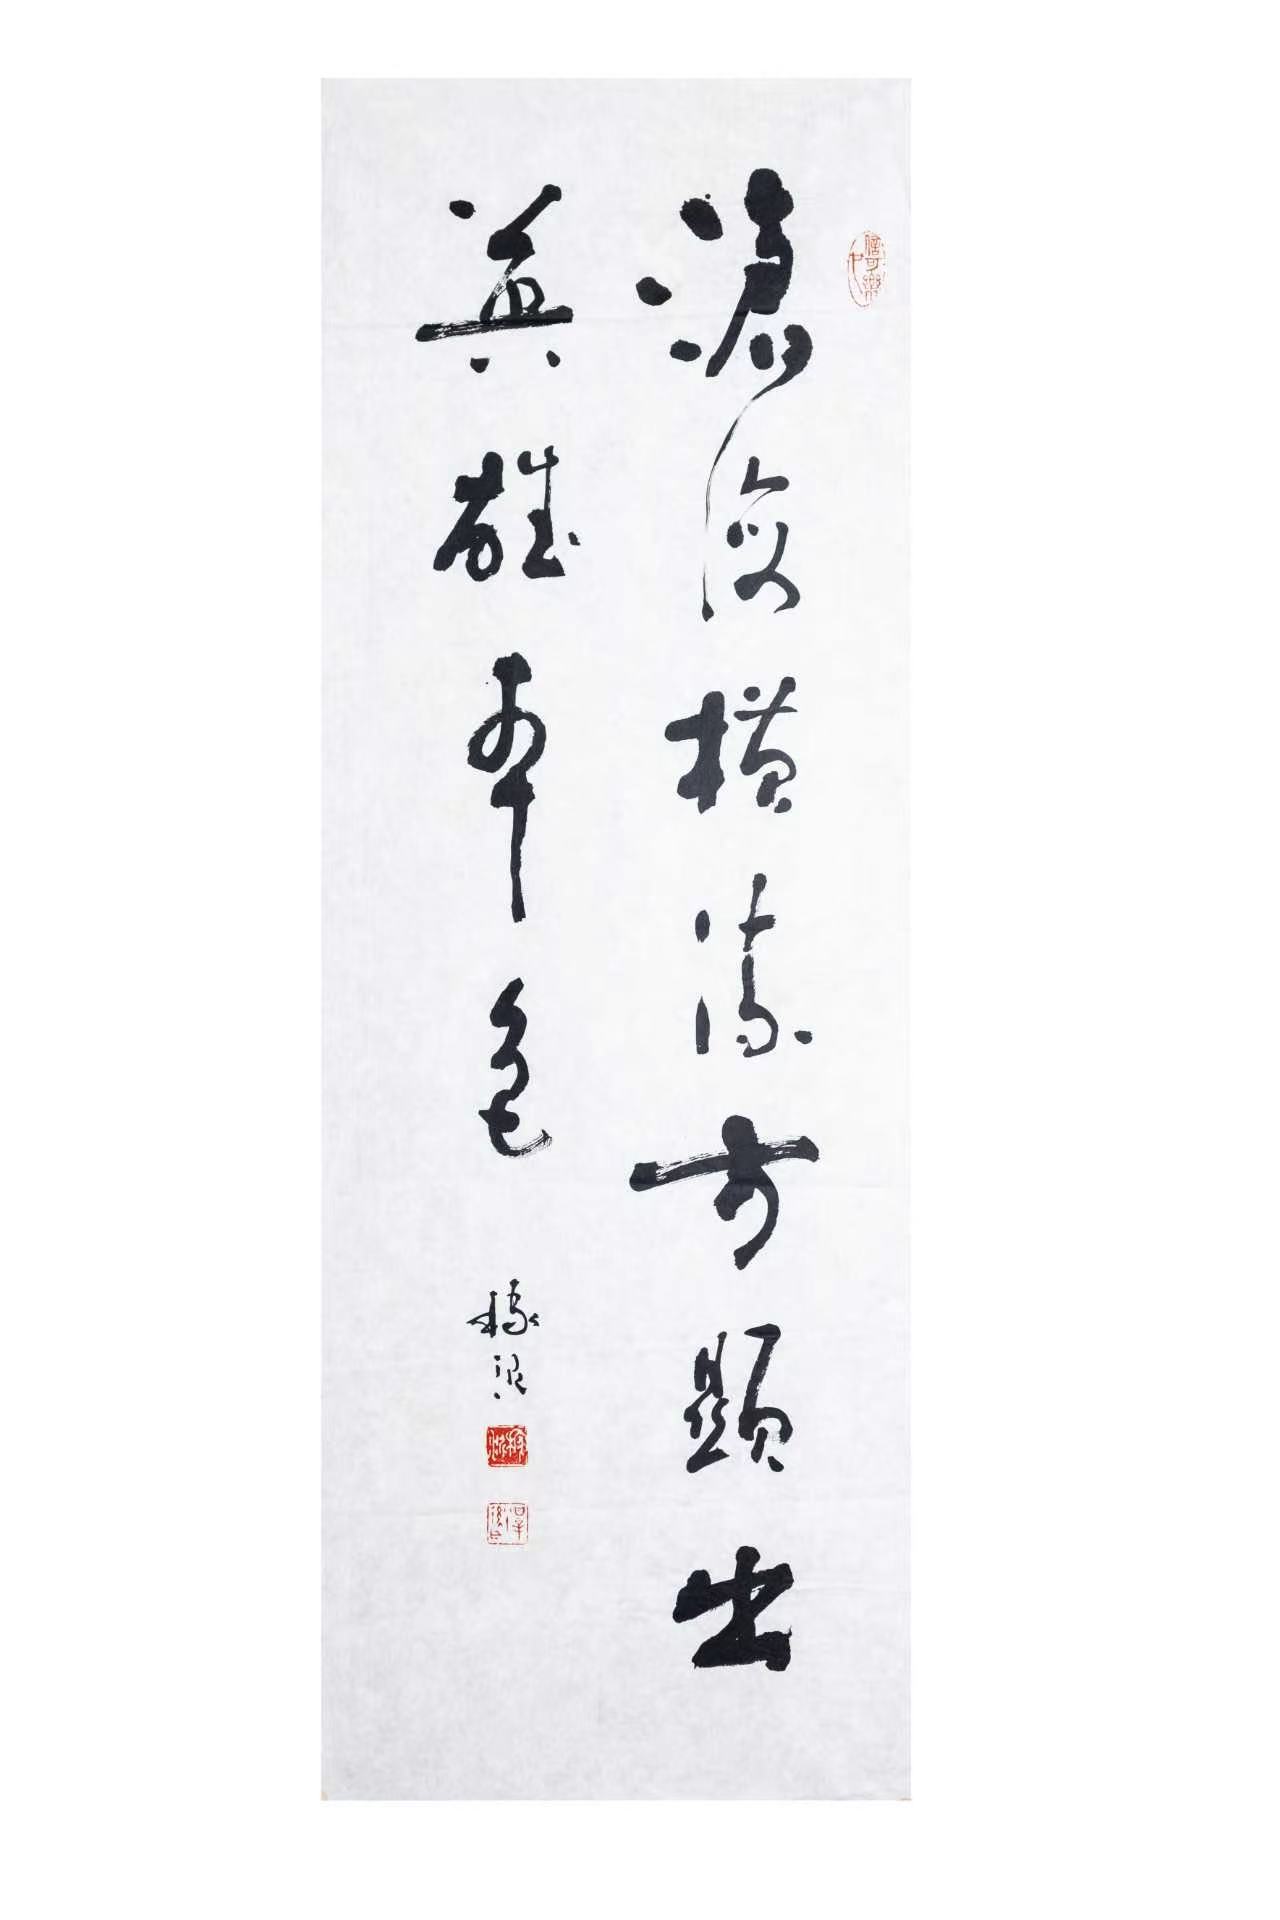 滄海橫流方顯出
英雄本色